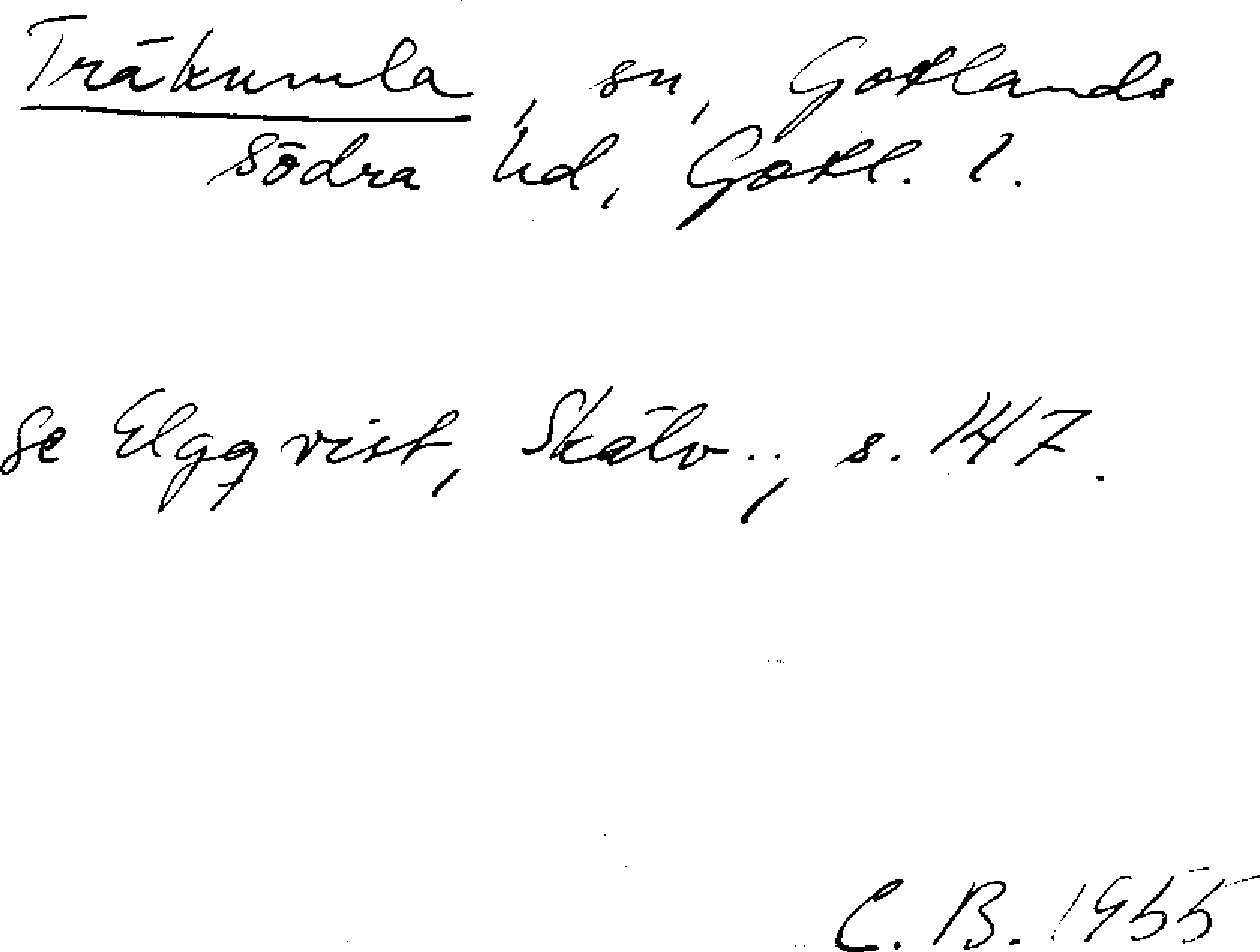 Träkumla, sn, Gotlands
södra hd, Gotl. l.
Se Elgqvist, Skälv.., s. 147.
C. B. 1955